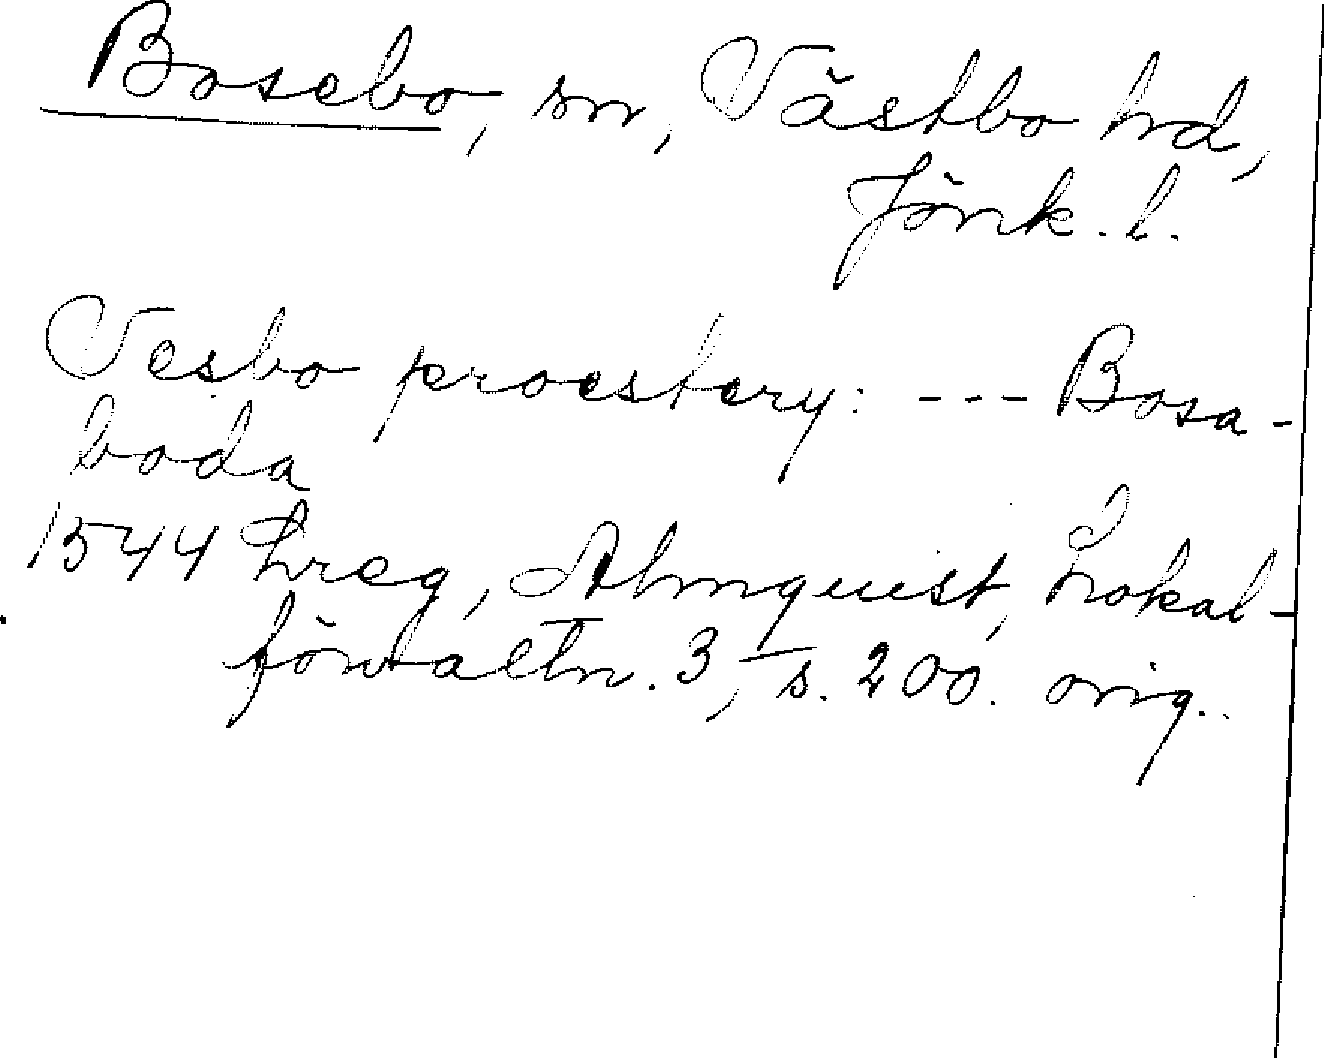 Bosebo, sn, Västbo hd,
Jönk. l.
Vesbo proestery: --- Bosa-
boda
1544 Lreg, Almquist, Lokal-
förvaltn. 3, s. 200. orig.